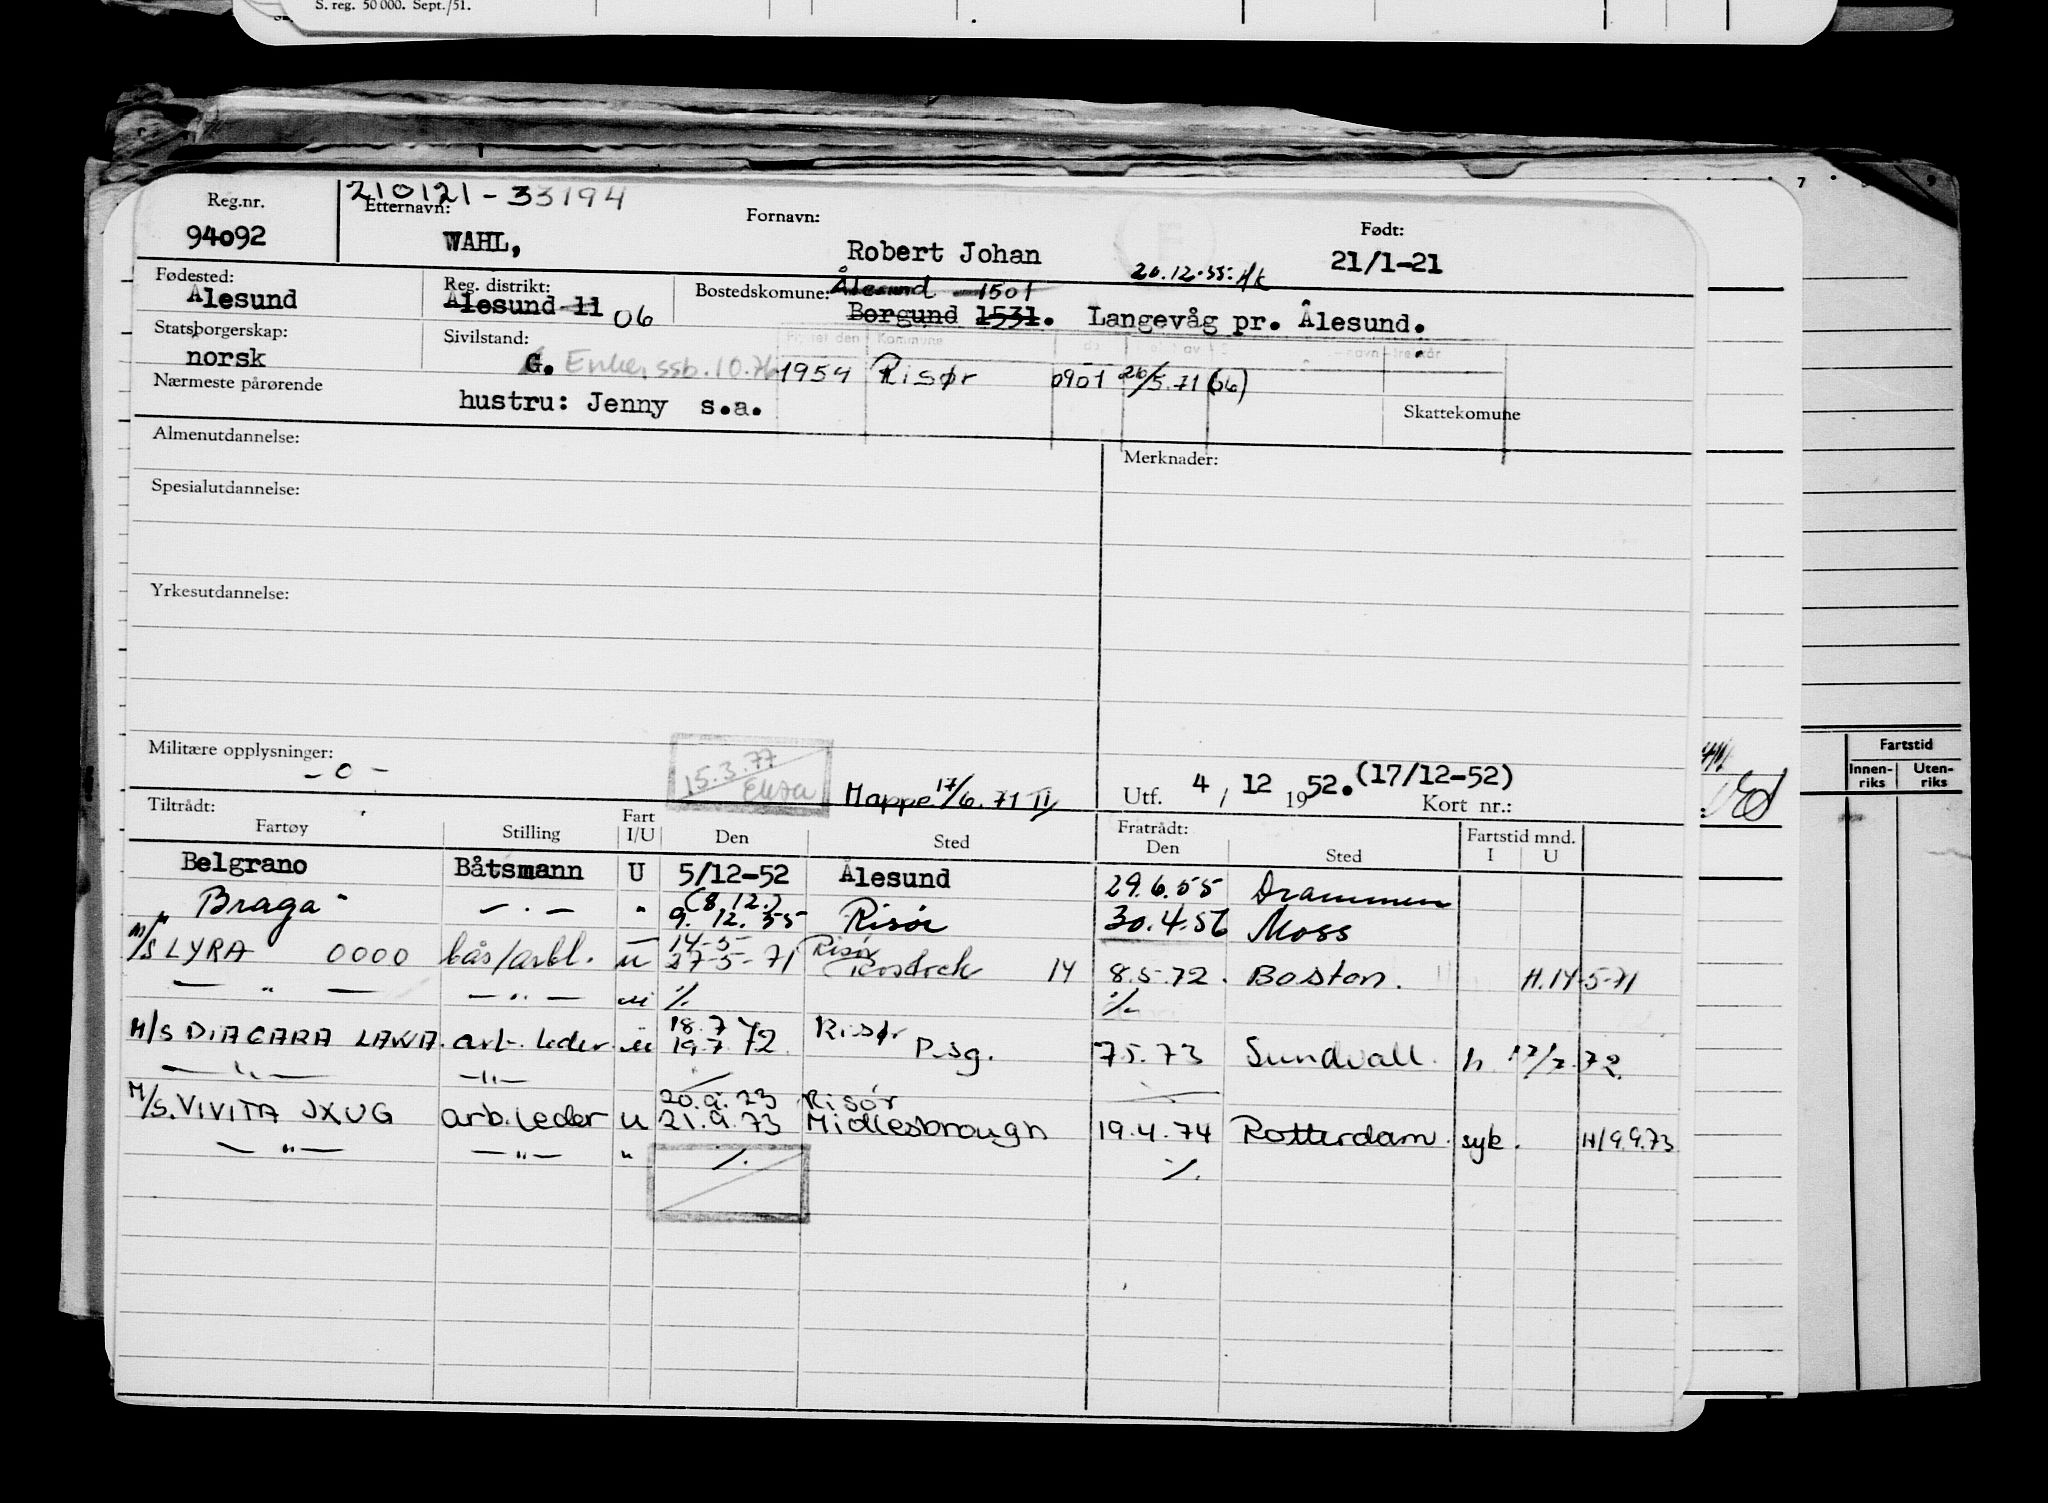 S. reg. 50 000. Sept./51.
210121 - 33194
Reg.nr. Etternavn: Fornavn: Født:
94092 WAHL, Robert Johan 21/1-21
20.12.55.
Fødested: Reg. distrikt: Bostedskomune: Ålesund 1501
Ålesund Ålesund 11 06 Borgund 1531. Langevåg pr. Ålesund.
Statsborgerskap: Sivilstand:
norsk G. Enke, ssb. 10.76
1954 Risør 0901 26/5.71 (06)
Nærmeste pårørende
hustru: Jenny s.a. Skattekomune
Almenutdannelse: Merknader:
Spesialutdannelse:
Yrkesutdannelse:
Militære opplysninger:
- 0 -
15.3.77
Mappe 17/6. 71 Utf. 4 / 12 1952. (17/12-52)
Kort nr.:
Tiltrådt: Fratrådt: Fartstid mnd.
Fartøy Stilling Fart I/U Den Sted Den Sted I U
Belgrano Båtsmann U 5/12-52 Ålesund 29.6.55 Drammen
(8.12.)
" Braga " — . — " 9. 12. 55 Risør 30.4.56 Moss
14-5- Risør
M/S LYRA 0000 bås/arbl. u 27-5-71 14 8.5.72. Boston. H.14-5-71
— " — — " — u ·/. ·/.
18.7 Risør
M/S DIAGARA LAWA. arb. leder u 19.7 72 P.sg. 7.5.73 Sundvall. h 17/7.72.
— " — — " —
20.9.73 Risör
M/S. VIVITA JXUG arb. leder u 21.9.73 Midlesbrough 19.4.74 Rotterdam. syk. H/9.9.73
— " — — " — " ·/. ·/.
Fartstid
Innen-riks Uten-riks